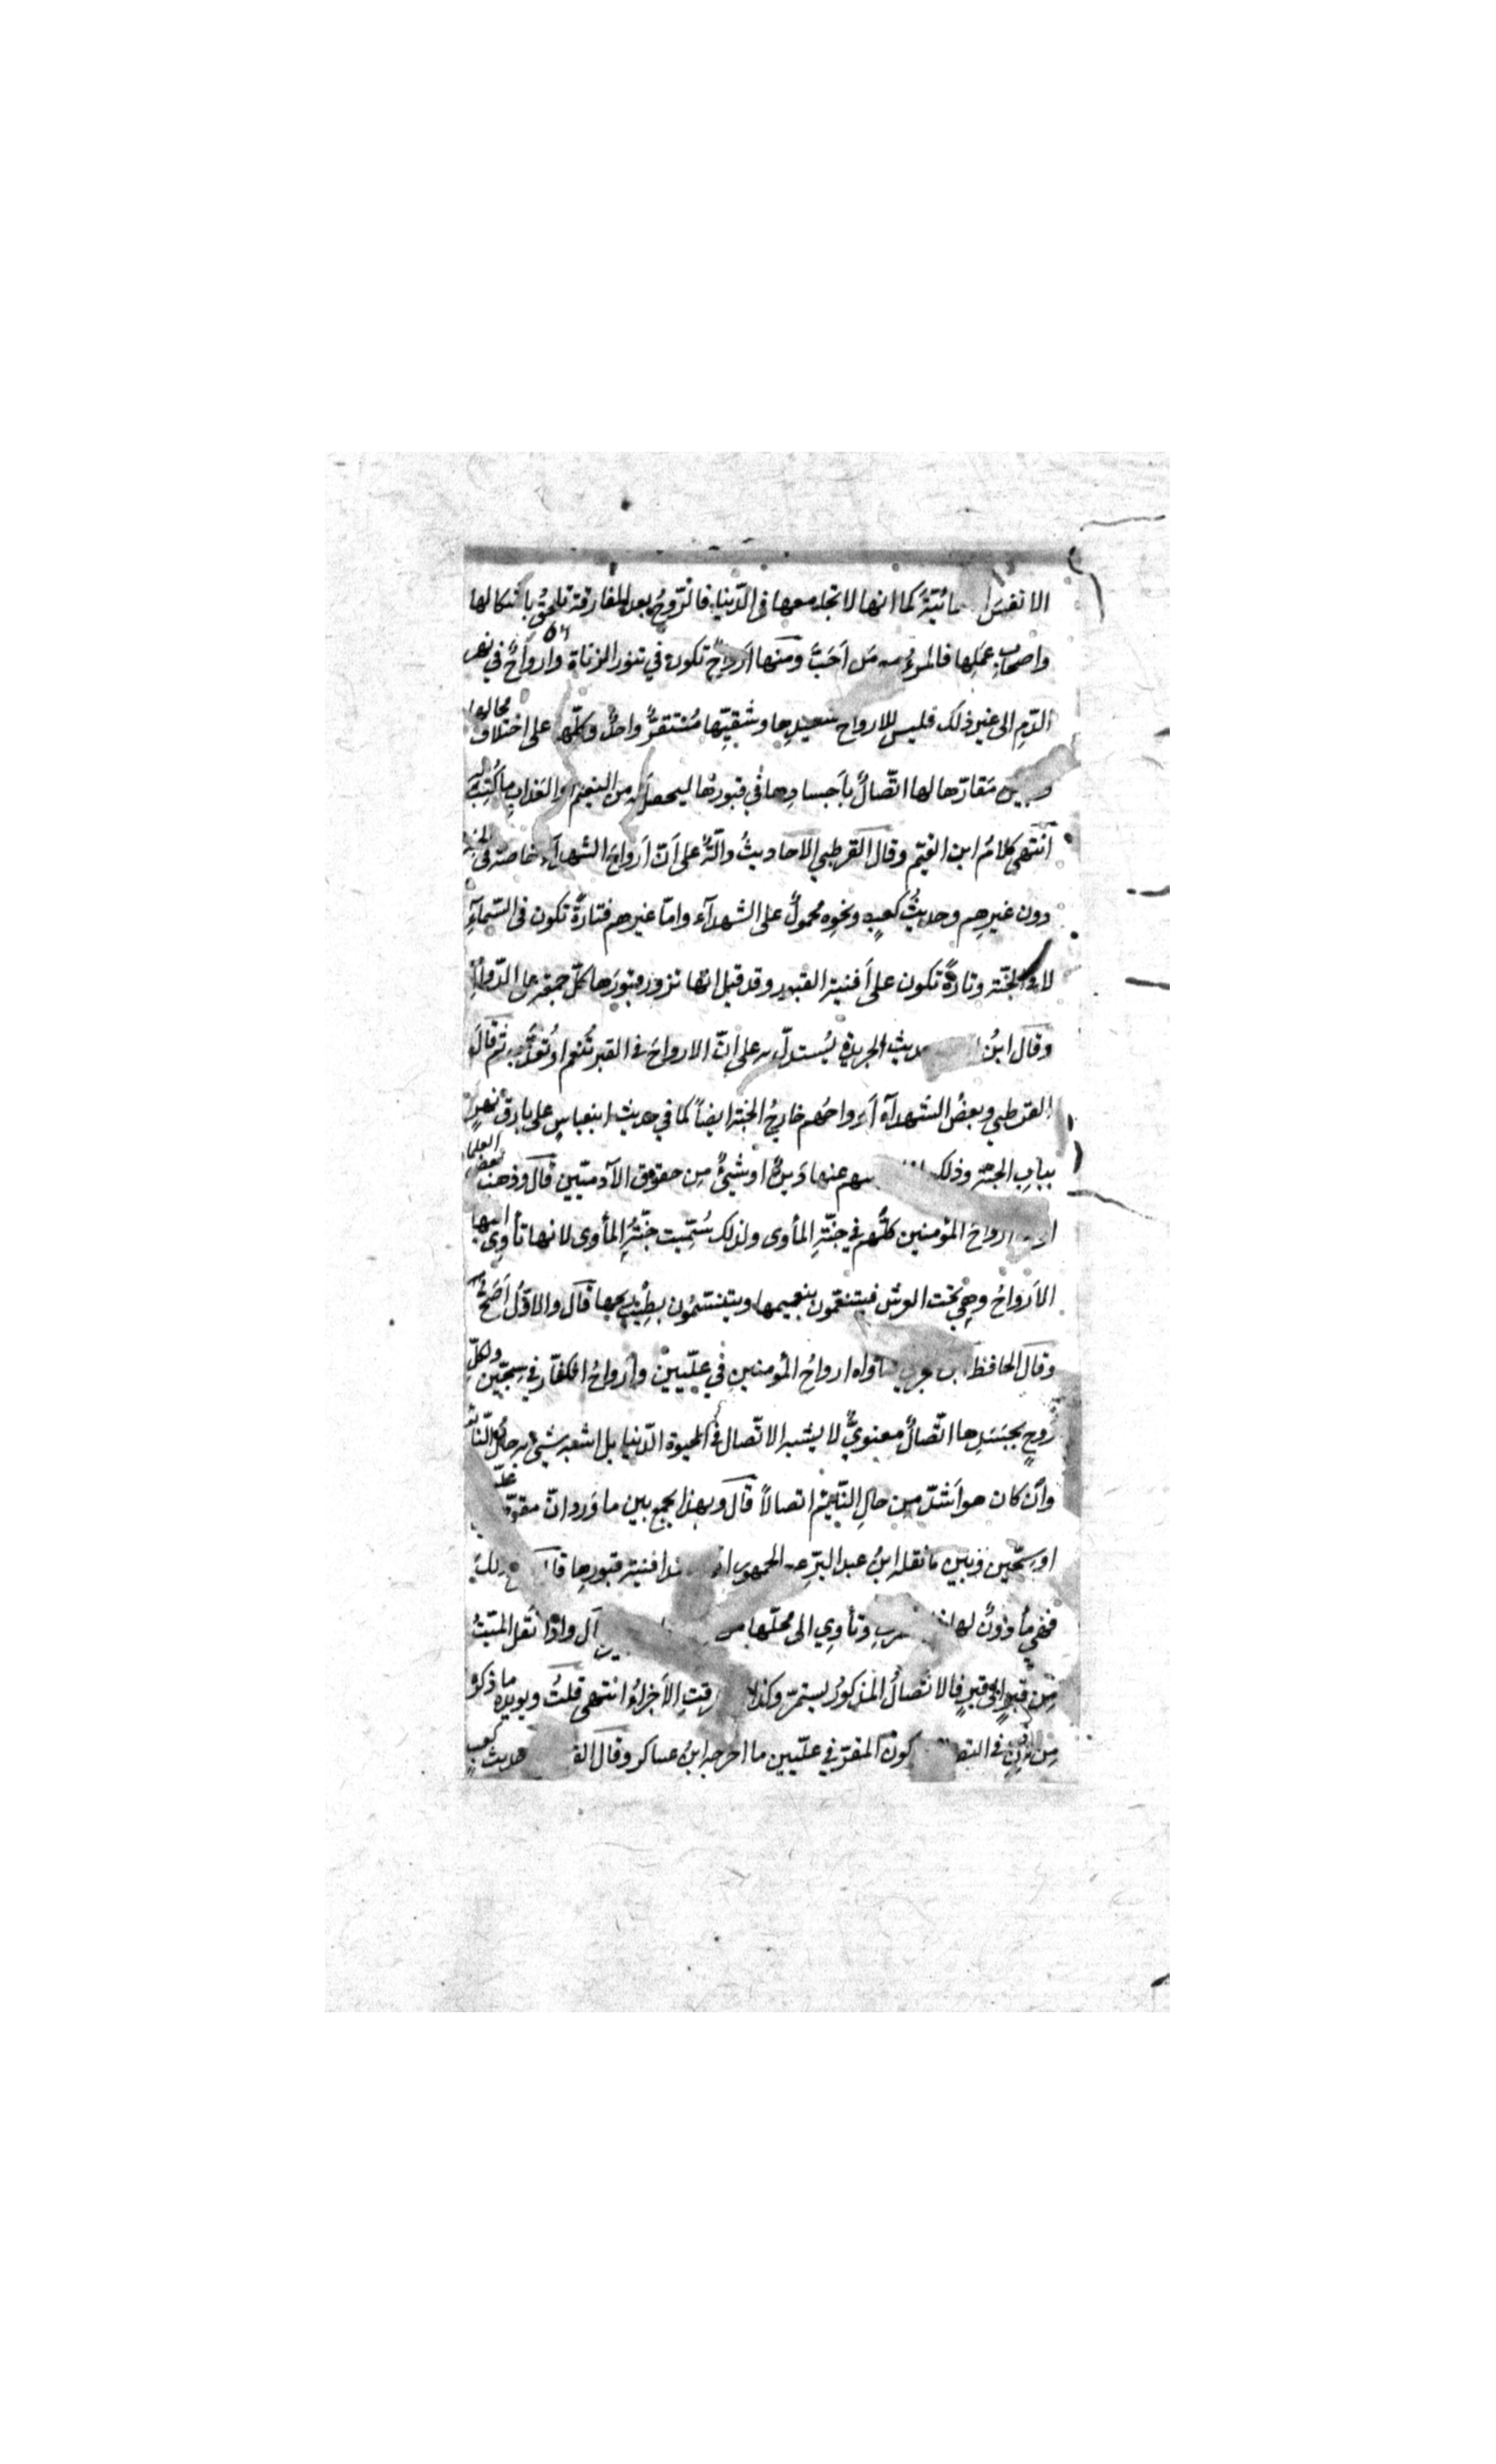 الانفس مائيّة كما انها لا تجد معها في الدّنيا فالرّوح بعد المفارقة تلحق باشكالها
واصحاب عملها فالمرء مع من احبّ ومنها ارواح تكون في تنور الزناة وارواح في نهر
الدّم الى غير ذلك فليس للارواح سعيدها وشقيّها مستقرّ واحد وكلّها على اختلاف محالها
وتباين مقارّها لها اتّصال باجسادها في قبورها ليحصل له من النعيم او العذاب ما كتب له
انتهى كلام ابن القيّم وقال القرطبي الاحاديث دالّة على انّ ارواح الشهدآء خاصة في الجنة
دون غيرهم وحديث كعب ونحوه محمول على الشهدآء وامّا غيرهم فتارة تكون في السّمآء
لا في الجنّة وتارة تكون على افنية القبور وقد قيل انها تزور قبورها كلّ جمعة على الدّوام
وقال ابن حديث الجريدة يستدلّ به على انّ الارواح في القبر تنعم او تعذّب ثم قال
القرطبي وبعض الشهدآء ارواحهم خارج الجنة ايضاً كما في حديث ابن عباس على بارق نهر
بباب الجنّة وذلك عنها دين او شيء من حقوق الآدميّين قال وذهب بعض العلما
ارواح المؤمنين كلّهم في جنّة المأوى ولذلك سمّيت جنّة المأوى لانها تأوي اليها
الارواح وهي تحت العرش فيتنعّمون بنعيمها ويتنسّمون بطيب ريحها قال والاوّل اصحّ
وقال الحافظ بن حجر فتاواه ارواح المؤمنين في علّيين وارواح الكفّار في سجّين ولكلّ
روح بجسدها اتّصال معنويّ لا يشبه الاتّصال في الحيوة الدّنيا بل اشبه شيء به حال النّائم
وان كان هو اشدّ من حال النّائم اتصالاً قال وبهذا يجمع بين ما ورد انّ مقرّها علّيين
او سجّين وبين ما نقله ابن عبد البرّ عن الجمهور عند افنية قبورها قال ومع ذلك
فهي مأذون لها وتأوي الى محلّها من قال واذا نقل الميّت
من قبر الى قبر فالاتّصال المذكور يستمرّ وكذا تفرقت الاجزاء انتهى قلت ويؤيده ما ذكر
من الاذن في التصرف كون المقرّ في علّيين ما اخرجه ابن عساكر وقال حديث كعب